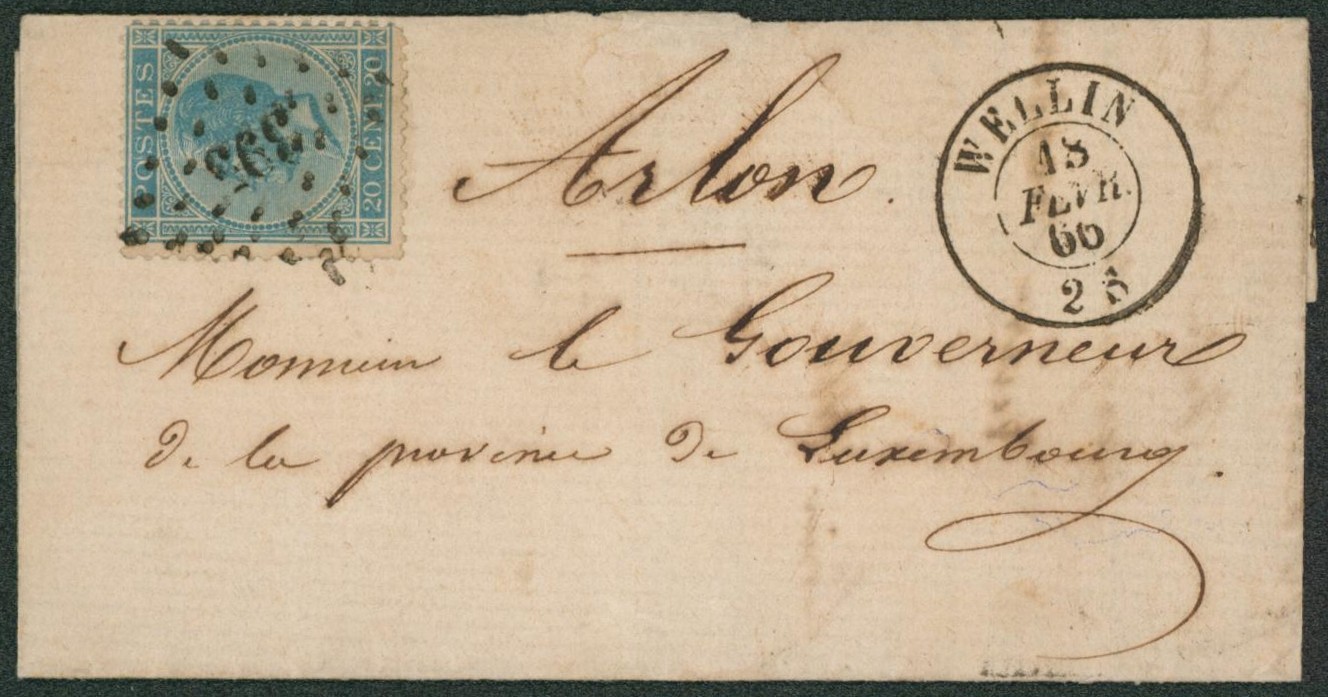 POSTES
20 CENT. 20
393
Arlon.
WELLIN
18
FEVR.
66
2 S
Monsieur le Gouverneur
de la province de Luxembourg.